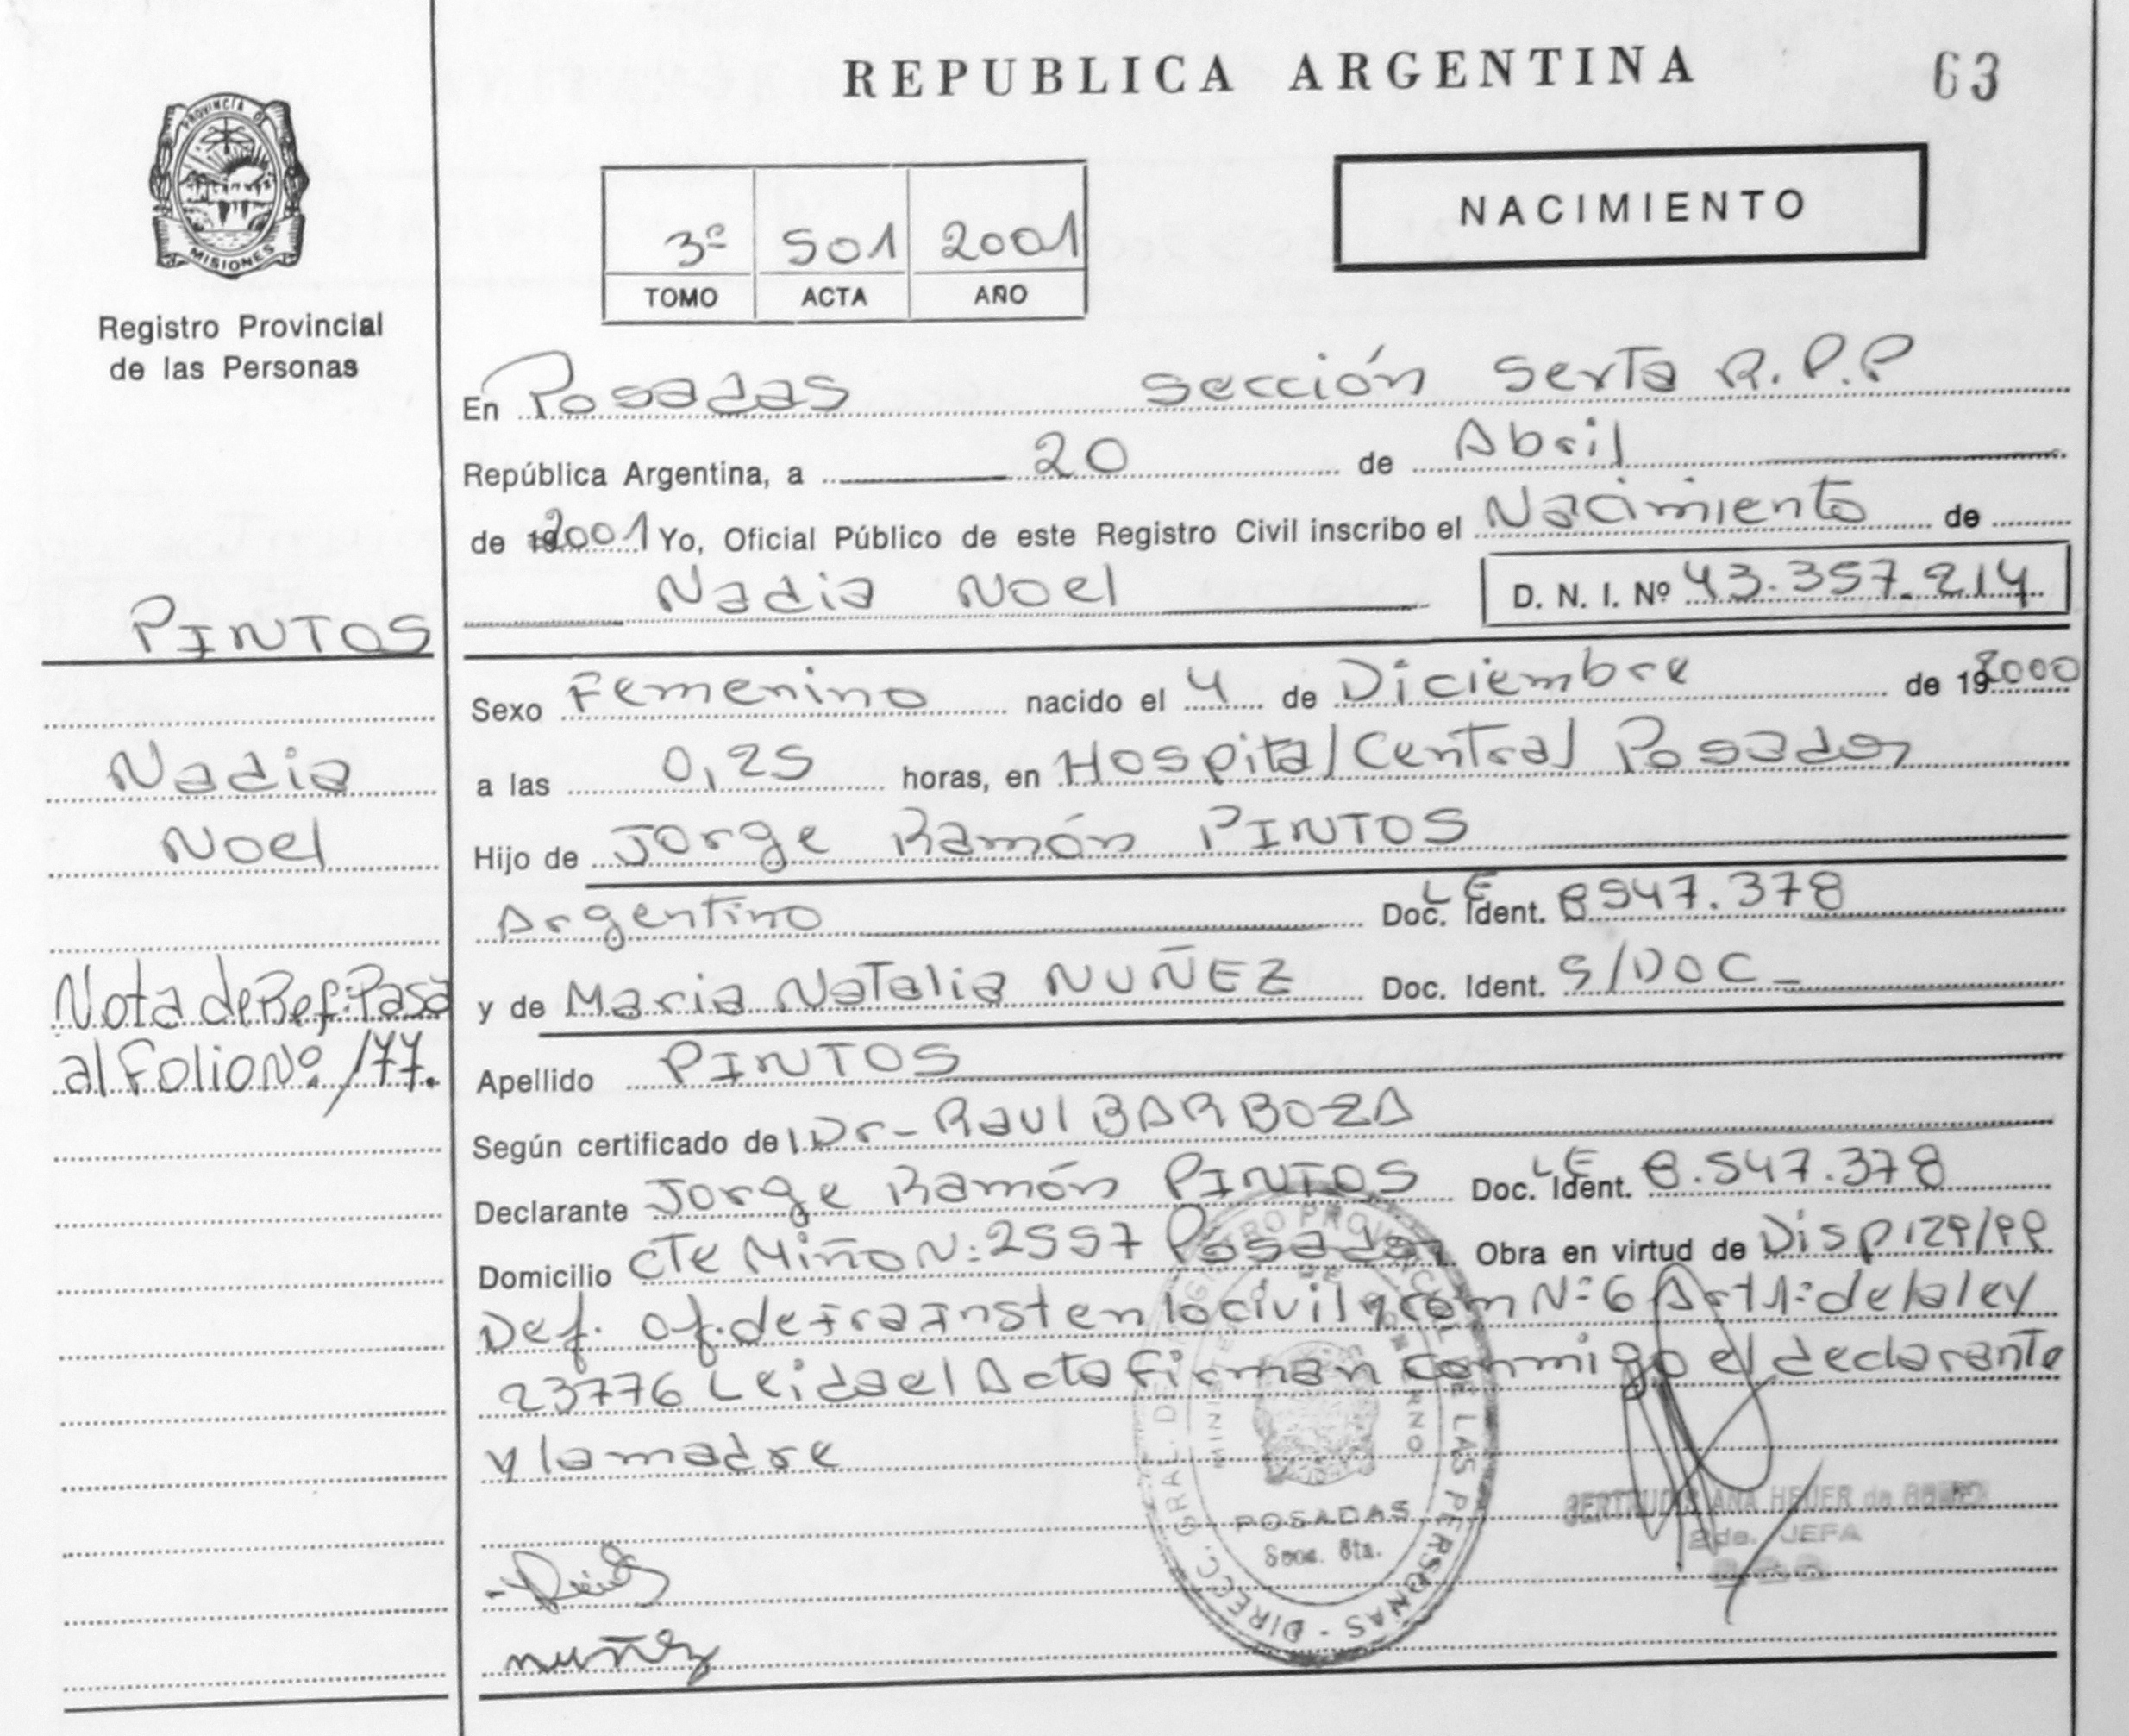 REPUBLICA ARGENTINA
63
PROVINCIA DE
MISIONES
Registro Provincial
de las Personas
3º 501 2001
TOMO ACTA AÑO
NACIMIENTO
En Posadas sección Sexta R.P.P
República Argentina, a 20 de Abril
de 192001 Yo, Oficial Público de este Registro Civil inscribo el Nacimiento de
Nadia Noel
D. N. I. Nº 43.357.214
PINTOS
Nadia
Noel
Nota de Ref: Pasa
al Folio Nº 177.
Sexo Femenino nacido el 4 de Diciembre de 192000
a las 0,25 horas, en Hospital Central Posadas
Hijo de Jorge Ramón PINTOS
Argentino Doc. Ident. LE 8547.378
y de Maria Natalia NUÑEZ Doc. Ident. S/DOC
Apellido PINTOS
Según certificado de Dr- Raul BARBOZA
Declarante Jorge Ramón PINTOS Doc. Ident. LE 8.547.378
Domicilio cte Miño N: 2557 Posadas Obra en virtud de Disp 129/99
Def. of. de Ira Inst en lo civil y com Nº 6 Art 1: de la ley
23776 Leida el Acta firman conmigo el declarante
y la madre
nuñez
DIRECC. GRAL. DEL REGISTRO PROVINCIAL DE LAS PERSONAS
MINISTERIO DE GOBIERNO
POSADAS
Secc. 6ta.
GERTRUDIS ANA HEUER de
2da. JEFA